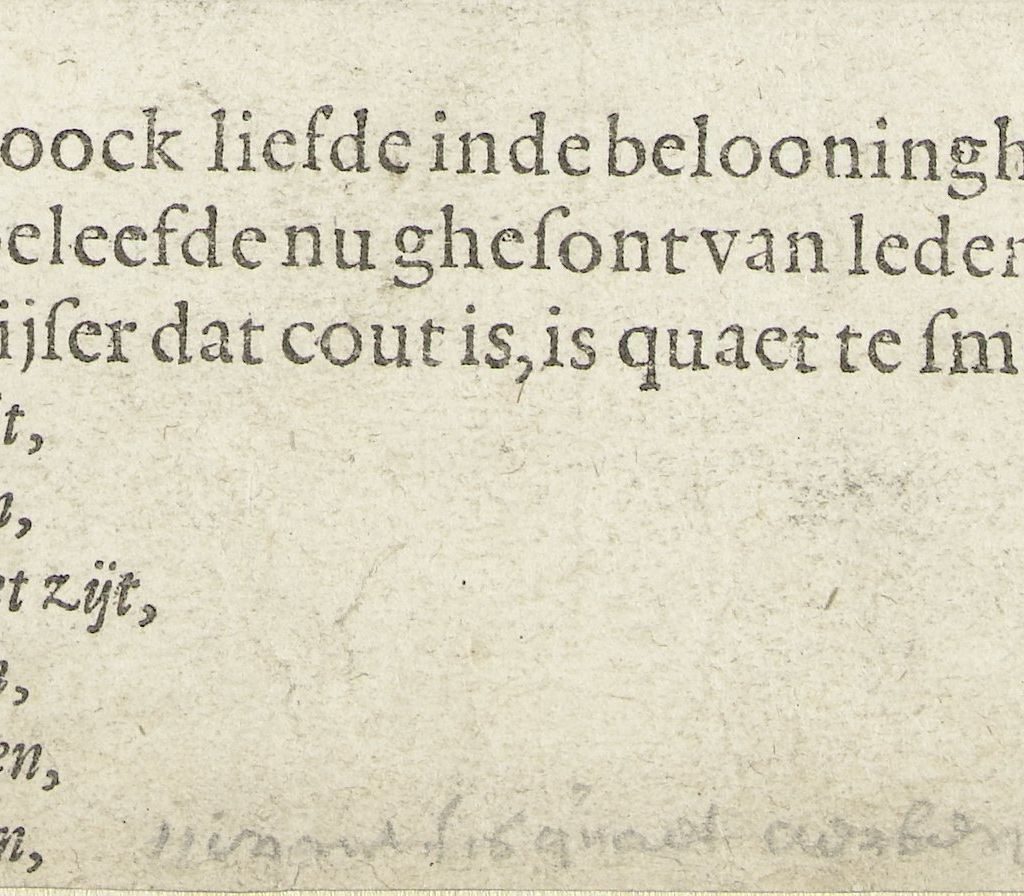 oock liefde inde belooningh
beleefde nu gheſont van leden
ijſer dat cout is, is quaet te ſm
t,
n,
et zijt,
n,
en,
n,
is quaet